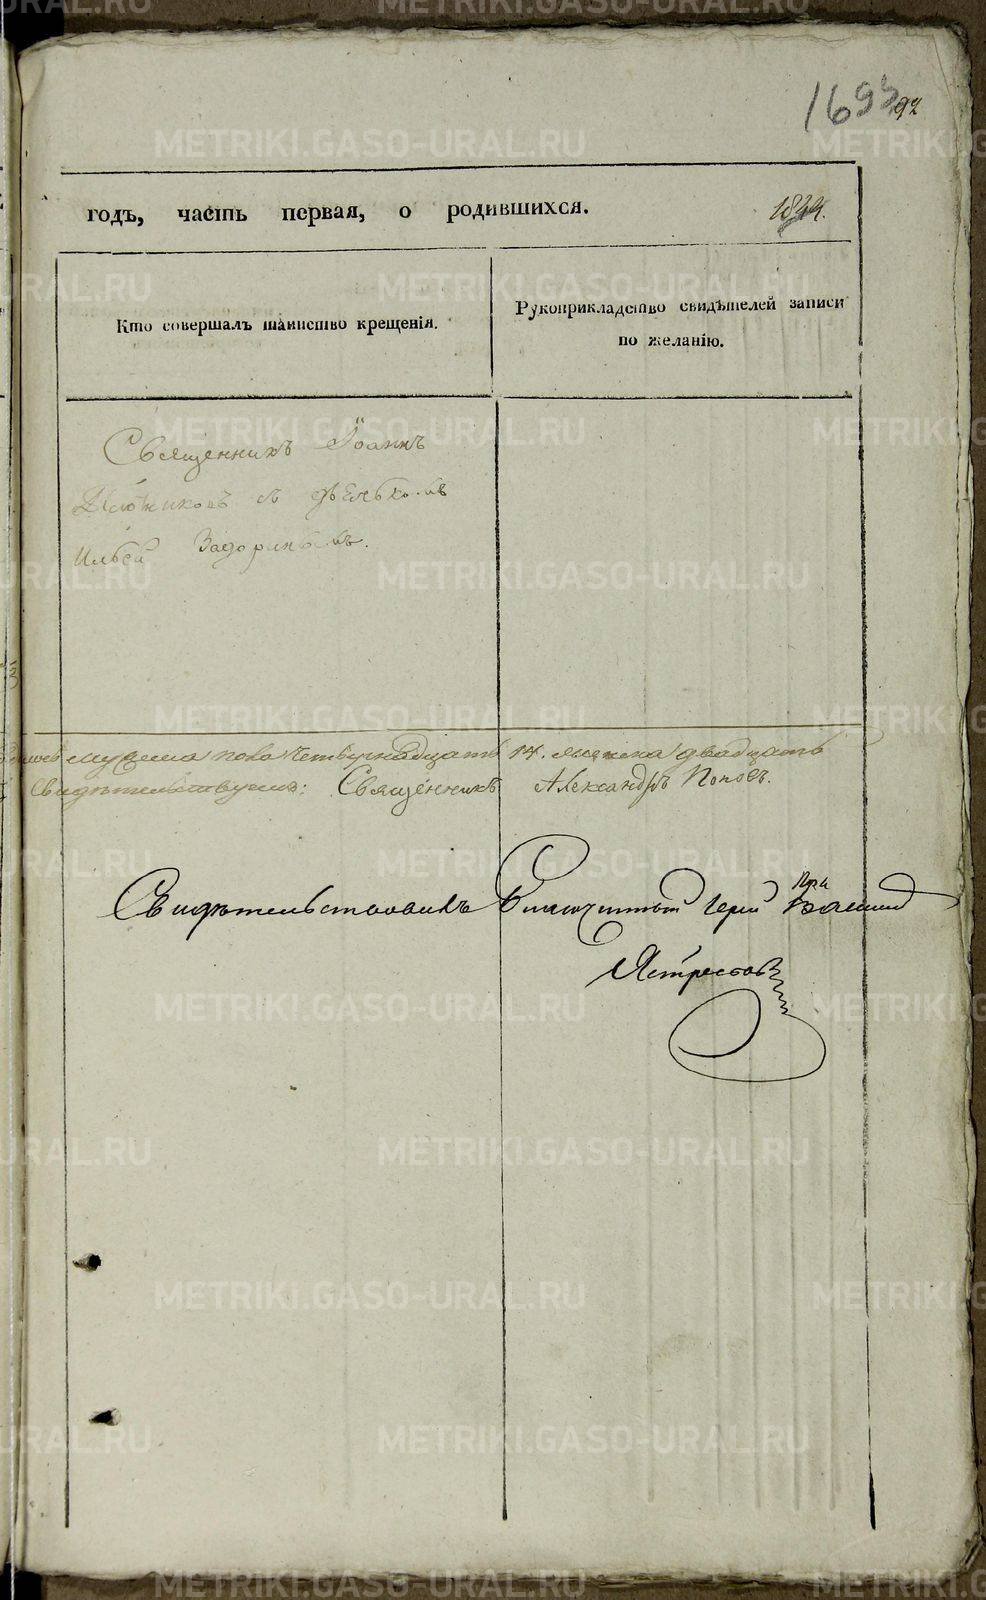 1693
92
годъ, часть первая, о родившихся. 1844.
Кто совершалъ таинство крещенія.
Рукоприкладство свидѣтелей записи
по желанію.
Священникъ Іоаннъ
съ
Ильей
мужеска пола четырнадцать 14. женска двадцать
Свидѣтельствуемъ: Священникъ Александръ Поповъ.
Свидѣтельствовалъ Благочинный Іерей
Ястребовъ
METRIKI.GASO-URAL.RU